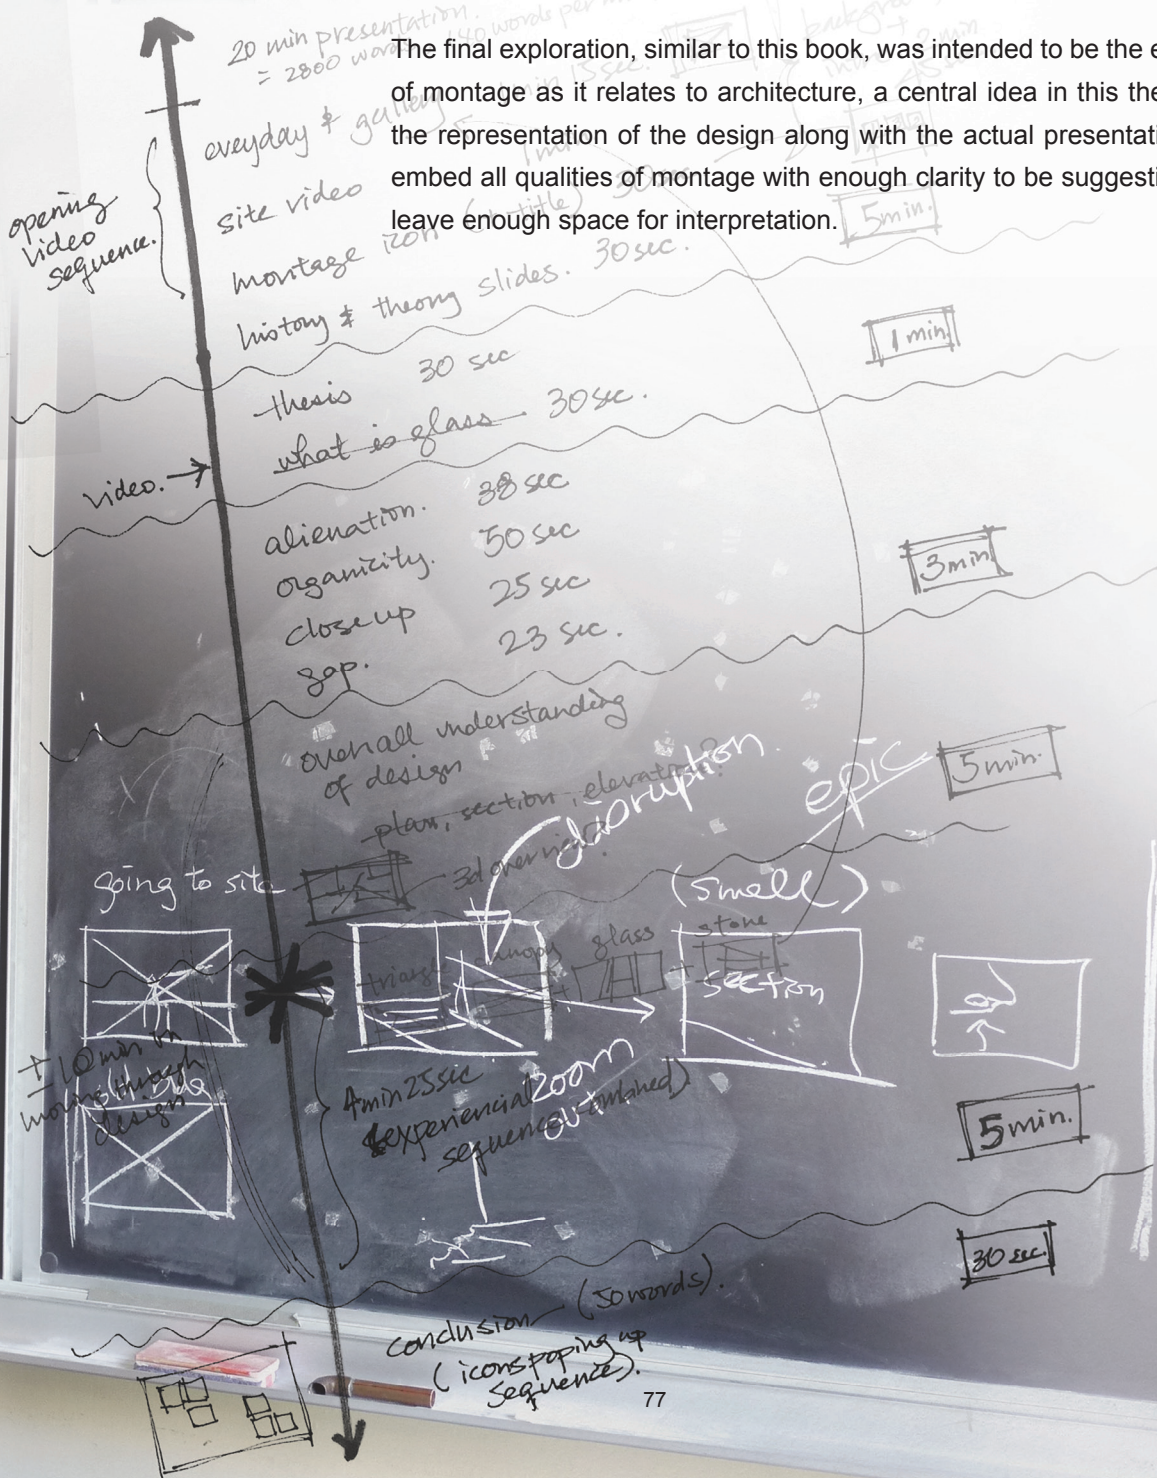 20 min presentation.
= 2800 words 140 words per min
The final exploration, similar to this book, was intended to be the e
of montage as it relates to architecture, a central idea in this the
the representation of the design along with the actual presentati
embed all qualities of montage with enough clarity to be suggesti
leave enough space for interpretation.
everyday & gallery
1 min
opening
video
sequence.
site video
30 sec
montage icon (title)
5 min.
history & theory slides. 30 sec.
1 min
thesis 30 sec
what is glass 30 sec.
video.
alienation. 38 sec
organicity. 50 sec
close up 25 sec
gap. 23 sec.
3 min
overall understanding
of design
plan, section, elevation?
3d overview?
5 min.
disruption.
epic
going to site
(small)
triangle canopy glass stone
section
± 10 min in
moving through
design
4min 25 sec
experiencial
sequence
zoom
out
5 min.
30 sec.
conclusion (50 words).
(icons poping up
sequence).
77